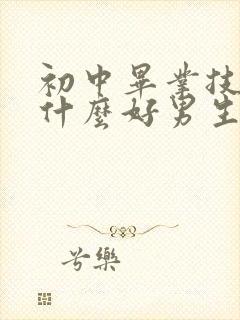 初中畢業技
什麼好男生
兮樂